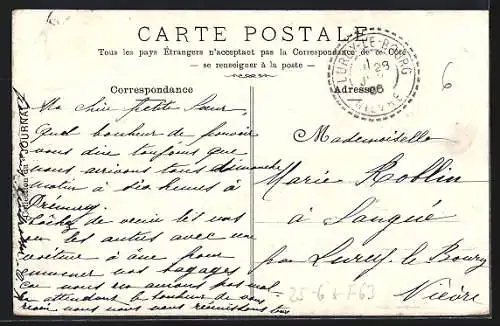 CARTE POSTALE
Tous les pays Étrangers n'acceptent pas la Correspondance de ce Côté
— se renseigner à la poste —
Correspondance
Adresse
LURCY-LE-BOURG
NIÈVRE
JOURNAL
6
Ma chère petite Sœur,
Quel bonheur de pouvoir
vous dire toujours que
nous arrivons tous dimanche
matin à dix heures à
Prémery.
tâchez de venir
ou les autres avec une
voiture à âne pour
emmener nos bagages
car nous en aurons pas mal
en attendant le bonheur de vous
revoir nous nous réunissons tous
Mademoiselle
Marie Roblin
à Sangué
par Lurcy le Bourg
Nièvre
25-6 + F63